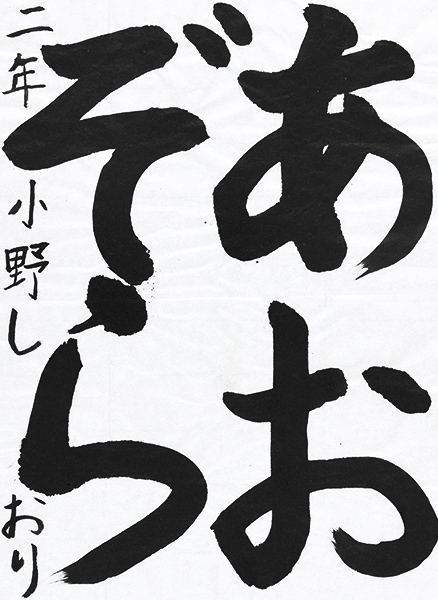 あお
ぞら
二年 小野しおり